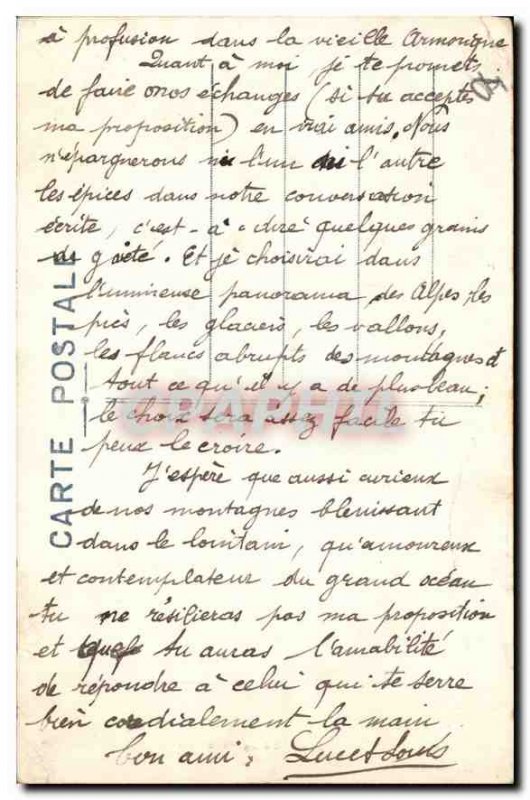 à profusion dans la vieille Armorique
Quant à moi je te promets
de faire nos échanges (si tu acceptes
ma proposition) en vrai amis. Nous
n'épargnerons ni l'un ni l'autre
les épices dans notre conversation
écrite, c'est-à-dire quelques grains
de gaîté. Et je choisirai dans
l'umineuse panorama des Alpes, les
pics, les glaciers, les vallons,
les flancs abrupts des montagnes et
tout ce qu'il y a de plus beau;
le choix sera assez facile tu
peux le croire.
J'espère que aussi curieux
de nos montagnes bleuissant
dans le lointain, qu'amoureux
et contemplateur du grand océan
tu ne résilieras pas ma proposition
et que tu auras l'amabilité
de répondre à celui qui te serre
bien cordialement la main
bon ami,
CARTE POSTALE